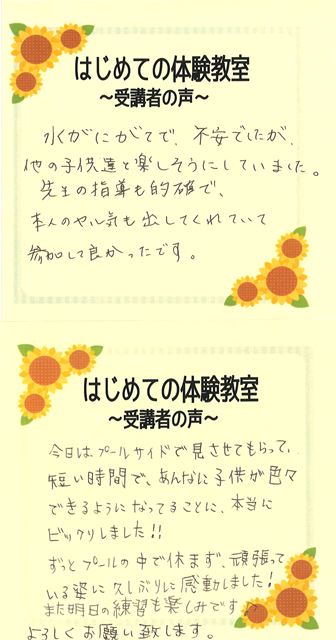 はじめての体験教室
～受講者の声～
水がにがてで、不安でしたが、
他の子供達と楽しそうにしていました。
先生の指導も的確で、
本人のやル気も出してくれていて
参加して良かったです。
はじめての体験教室
～受講者の声～
今日はプールサイドで見させてもらって、
短い時間で、あんなに子供が色々
できるようになってることに、本当に
ビックリしました!!
ずっとプールの中で休まず、頑張って
いる姿に久しぶりに感動しました!
また明日の練習も楽しみです♪
よろしくお願い致します。